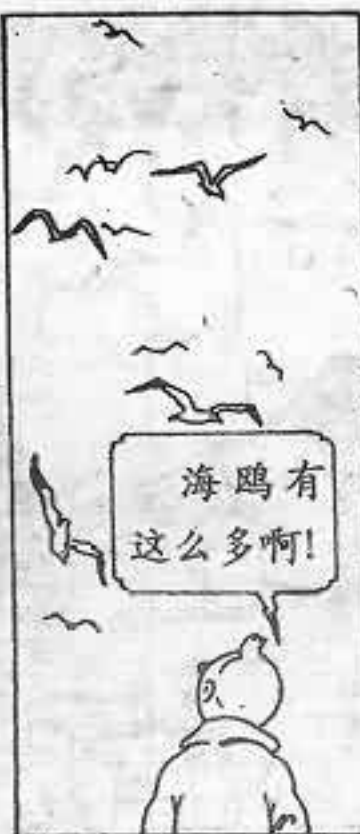 海鸥有
这么多啊!